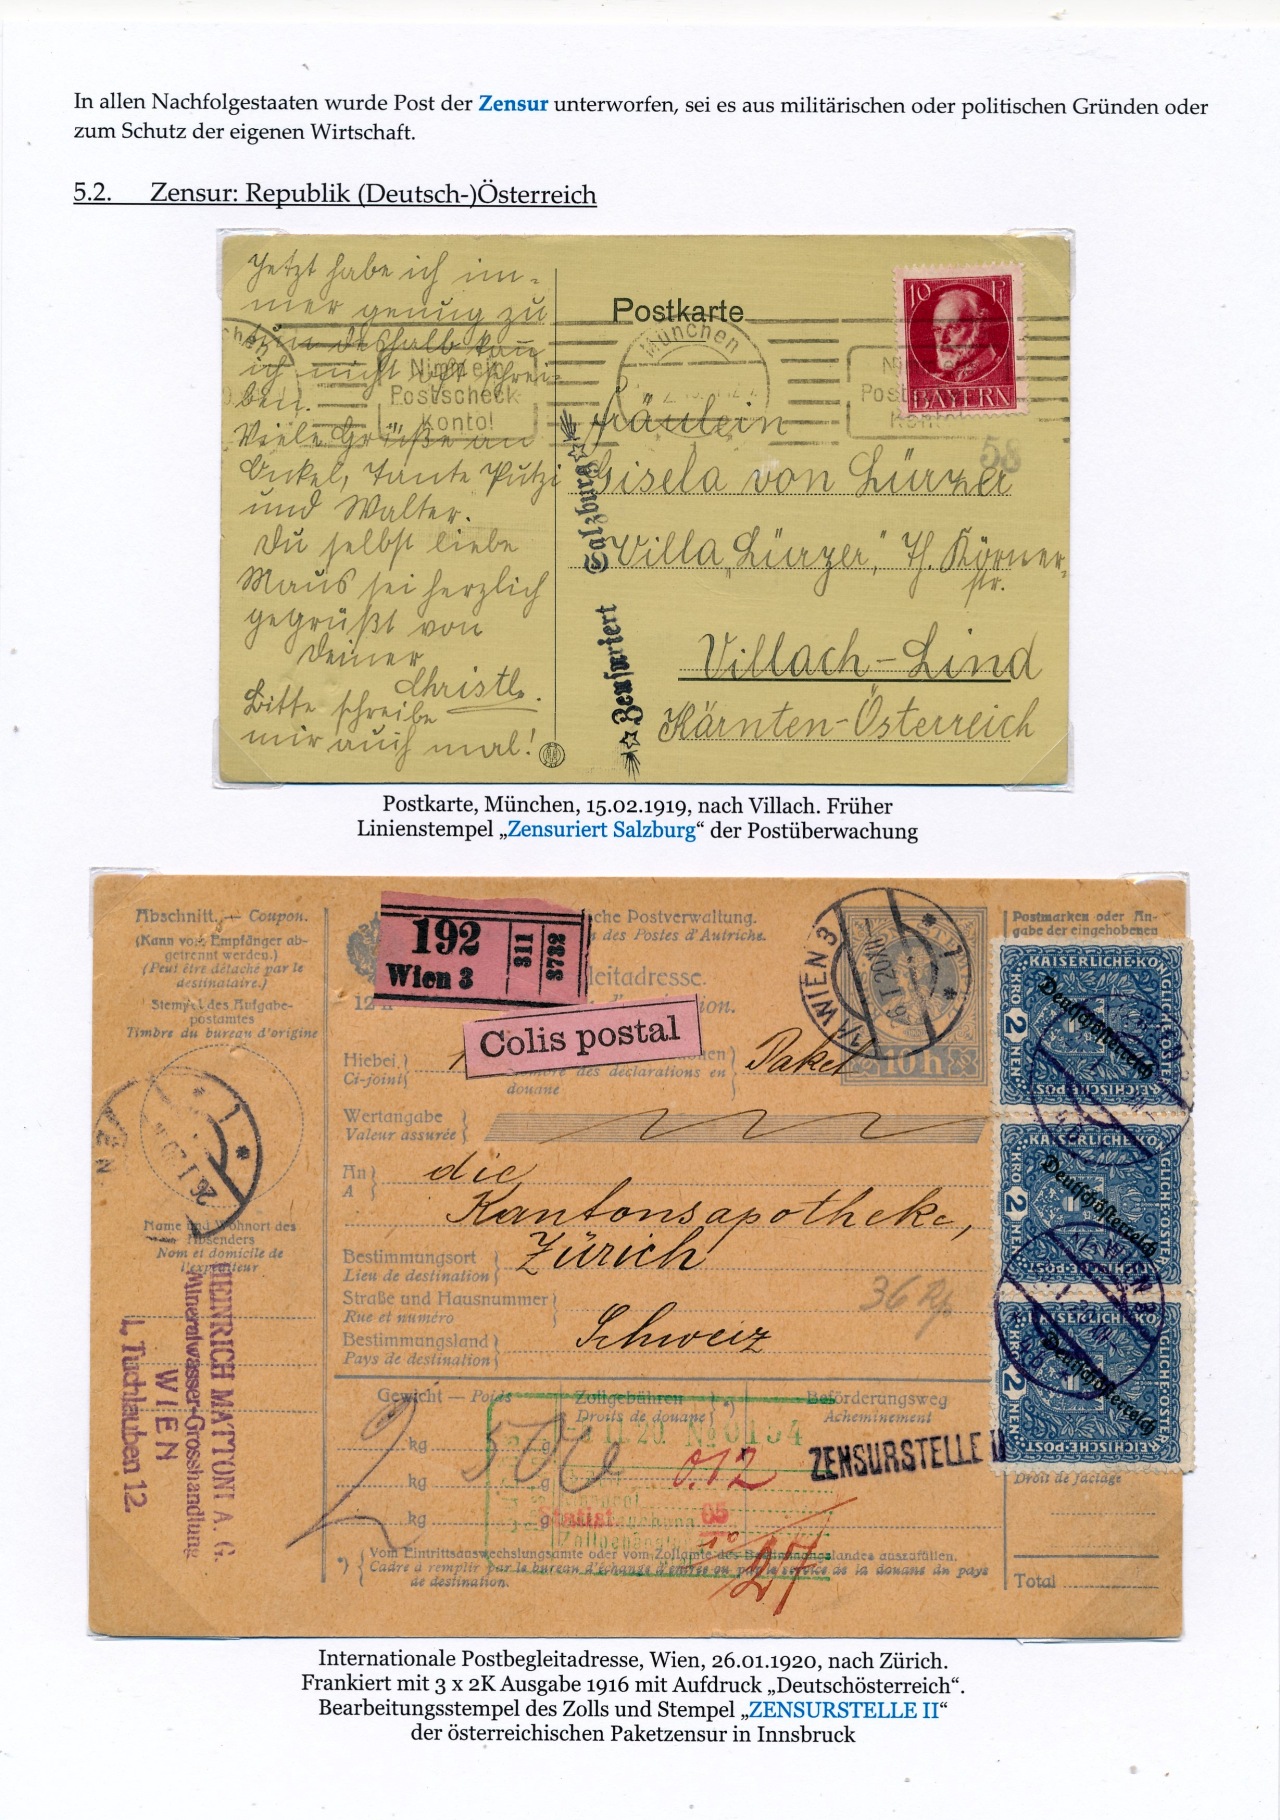 In allen Nachfolgestaaten wurde Post der Zensur unterworfen, sei es aus militärischen oder politischen Gründen oder
zum Schutz der eigenen Wirtschaft.
5.2. Zensur: Republik (Deutsch-)Österreich
Jetzt habe ich im-
mer genug zu
tun deshalb kann
ich nicht oft schrei-
ben.
Viele Grüße an
Onkel, Tante Putzi
und Walter.
Du selbst liebe
Maus sei herzlich
gegrüßt von
Deiner
Christl.
Bitte schreibe
mir auch mal!
Postkarte
10 Pf
BAYERN
München
Nimm ein
Postscheck-
Konto!
58
Fräulein
Gisela von Lürzer
Villa „Lürzer", Th. Körner-
str.
Villach-Lind
Kärnten-Österreich
Zensuriert Salzburg
Postkarte, München, 15.02.1919, nach Villach. Früher
Linienstempel „Zensuriert Salzburg“ der Postüberwachung
Abschnitt. — Coupon.
(Kann vom Empfänger ab-
getrennt werden.)
(Peut être détaché par le
destinataire.)
Stempel des Aufgabe-
postamtes
Timbre du bureau d'origine
26 I 20
Name und Wohnort des
Absenders
Nom et domicile de
l'expéditeur
HEINRICH MATTONI A. G.
Mineralwasser-Grosshandlung
WIEN
I., Tuchlauben 12.
192
Wien 3
311
3732
che Postverwaltung.
n des Postes d'Autriche.
leitadresse.
ion.
12 h
Colis postal
1/1 WIEN 3
26 I 20 XII
10 h
Hiebei
Ci-joint
1
des déclarations en
douane
Paket
Wertangabe
Valeur assurée
An
A
die
Kantonsapotheke,
Bestimmungsort
Lieu de destination
Zürich
Straße und Hausnummer
Rue et numéro
36 Rp.
Bestimmungsland
Pays de destination
Schweiz
Gewicht — Poids
Zollgebühren
Droits de douane
Beförderungsweg
Acheminement
2 kg 500 g
kg g
kg g
II 20. No
0.12
ZENSURSTELLE II
Statist.
65
27
*) Vom Eintrittsauswechslungsamte oder vom Zollamte des Bestimmungslandes auszufüllen.
Cadre à remplir par le bureau d'échange d'entrée ou par le service de la douane du pays
de destination.
Postmarken oder An-
gabe der eingehobenen
KAISERLICHE·KÖNIGLICH·ÖSTERREICHISCHE·POST
2 KRONEN 2
Deutschösterreich
KAISERLICHE·KÖNIGLICH·ÖSTERREICHISCHE·POST
2 KRONEN 2
Deutschösterreich
KAISERLICHE·KÖNIGLICH·ÖSTERREICHISCHE·POST
2 KRONEN 2
Deutschösterreich
Droit de factage
Total
Internationale Postbegleitadresse, Wien, 26.01.1920, nach Zürich.
Frankiert mit 3 x 2K Ausgabe 1916 mit Aufdruck „Deutschösterreich“.
Bearbeitungsstempel des Zolls und Stempel „ZENSURSTELLE II“
der österreichischen Paketzensur in Innsbruck